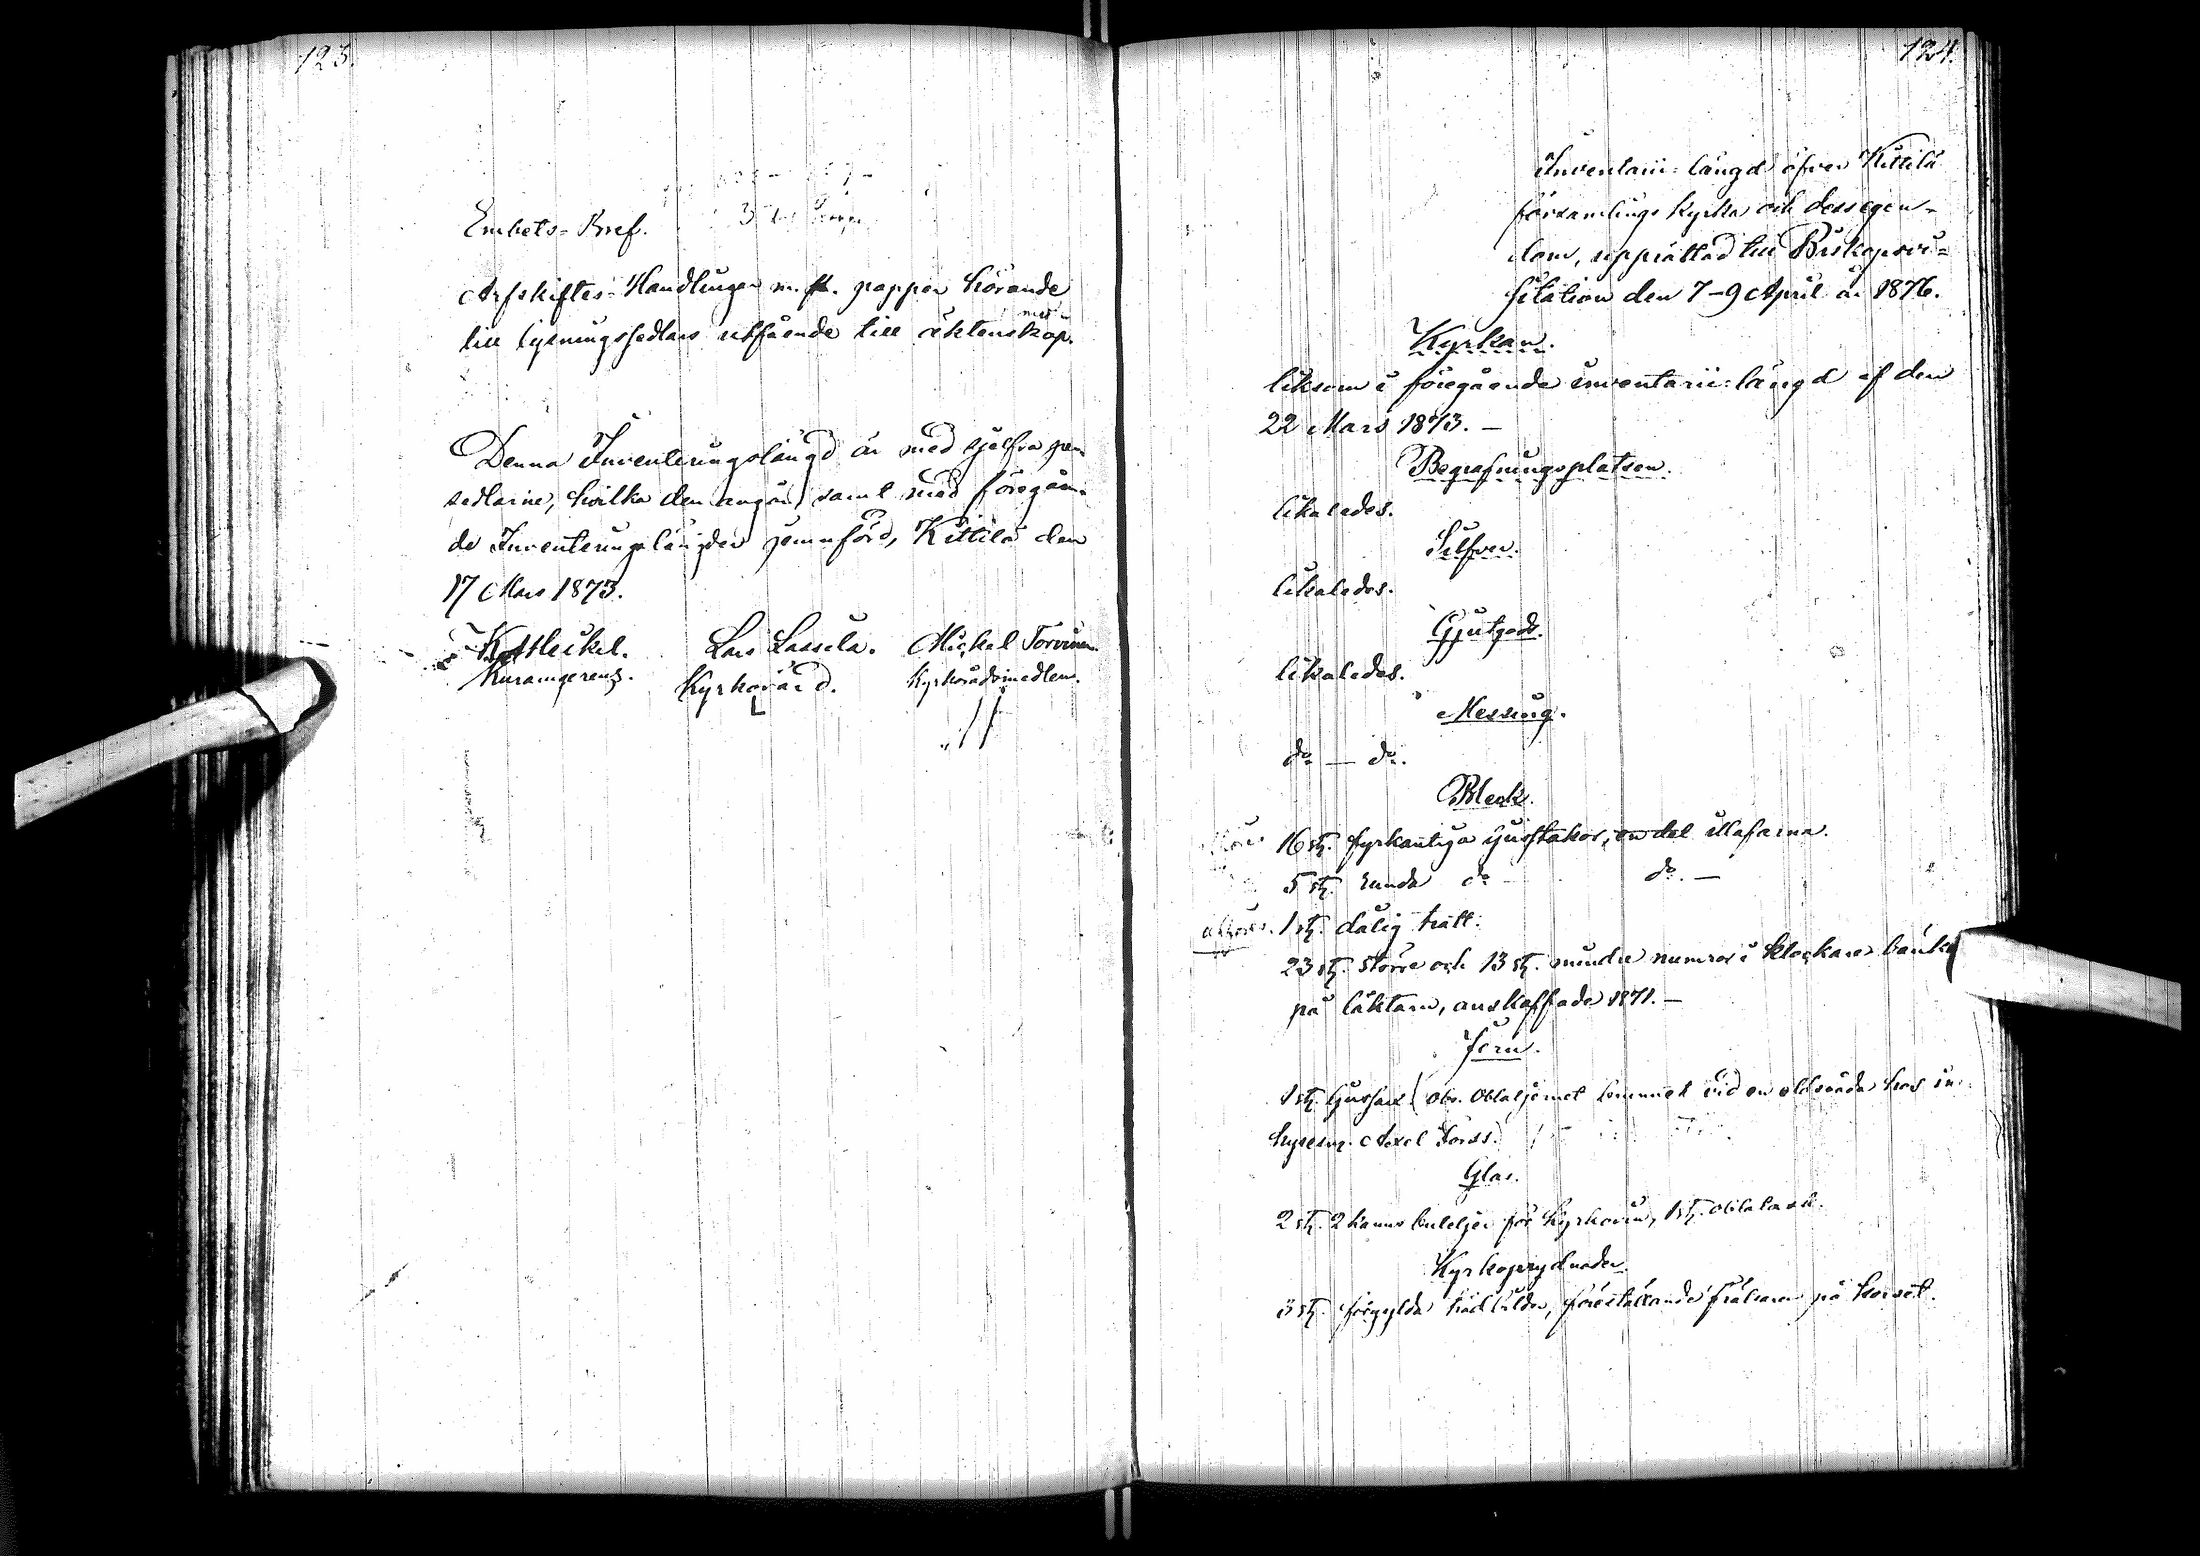 123.
Embets-Bref.
Arfskiftes-Handlingar m. fl. papper hörande
till lysningssedlars utfående till äktenskap.
Denna Inventeringslängd är med sjelfva per
sedlarne, hvilka den angår, samt med föregåen-
de Inventeringslängder jemnförd, Kittilä den
17 Mars 1873.
K. A. Heikel. Lars Laasila. Michel Torvinen.
Kyrkovärd. Kyrkorådsmedlem.
124.
Inventarii-längd öfver Kittilä
församlings kyrka och dess egen-
dom, upprättad till Biskopsvi-
sitation den 7-9 April år 1876.
Kyrkan.
liksom i föregående inventarii-längd af den
22 Mars 1873. —
Begrafningsplatsen.
likaledes.
Silfver.
likaledes.
Gjutgods.
likaledes.
Messing.
do — do.
Bleck.
16 st. fyrkantiga ljusstakar, en del illafarna.
5 st. runda do do. —
1 st. dålig tratt.
23 st. större och 13 st. mindre numror i klockare bänken
på läktarn, anskaffade 1871. —
Jern.
1 st. ljussax (obs. Oblatjernet brunnit vid en eldsvåda hos in-
hysesm. Axel Forss.)
Glas.
2 st. 2 kanns buteljer för kyrkovin, 1 st. oblatask.
Kyrkoprydnader.
3 st. förgyllda träbilder, föreställande frälsaren på korset.